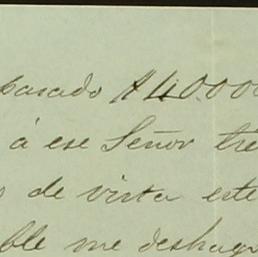 pasado $40.000
á ese Señor tre
de vista este
ble me deshag